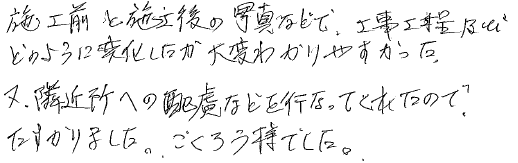 施工前と施工後の写真などで、工事工程及び
どのように変化したか大変わかりやすかった。
又、隣近所への配慮などを行なってくれたので
たすかりました。ごくろう様でした。